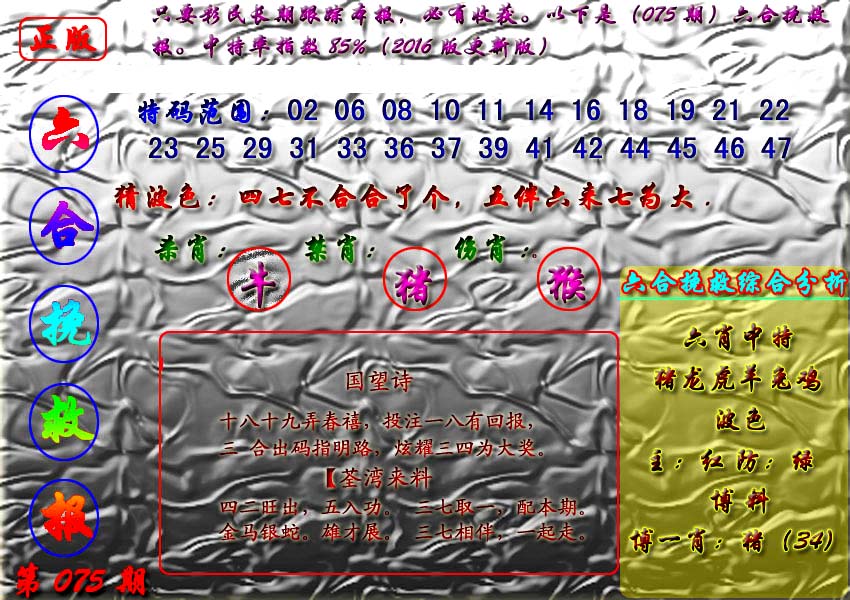 只要彩民长期跟踪本报，必有收获。以下是（075期）六合挽救
报。中特率指数85%（2016版更新版）
正版
六合挽救报
第075期
特码范围：02 06 08 10 11 14 16 18 19 21 22
23 25 29 31 33 36 37 39 41 42 44 45 46 47
猜波色：四七不合合了个，五伴六来七为大.
杀肖：牛 禁肖：猪 伤肖：。猴
国望诗
十八十九弄春禧，投注一八有回报，
三 合出码指明路，炫耀三四为大奖。
【荃湾来料
四二旺出，五八功。 二七取一，配本期。
金马银蛇。雄才展。 三七相伴，一起走。
六合挽救综合分析
六肖中特
猪龙虎羊兔鸡
波色
主：红防：绿
博料
博一肖：猪（34）